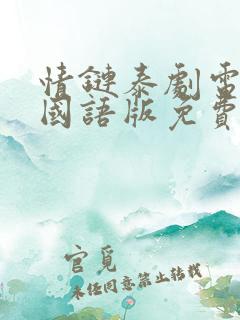 情鏈泰劇電
國語版免費
官覓
未任同意禁止转载